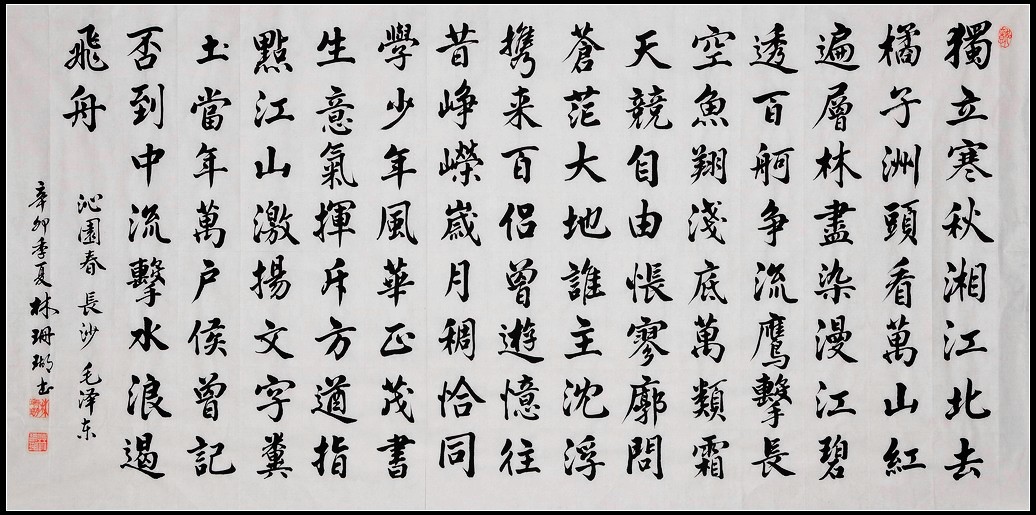 獨立寒秋湘江北去
橘子洲頭看萬山紅
遍層林盡染漫江碧
透百舸争流鷹擊長
空魚翔淺底萬類霜
天競自由悵寥廓問
蒼茫大地誰主沈浮
携来百侣曾遊憶往
昔峥嶸歲月稠恰同
學少年風華正茂書
生意氣揮斥方遒指
點江山激揚文字糞
土當年萬户侯曾記
否到中流擊水浪遏
飛舟
沁園春 長沙 毛泽东
辛卯季夏林珊瑚书